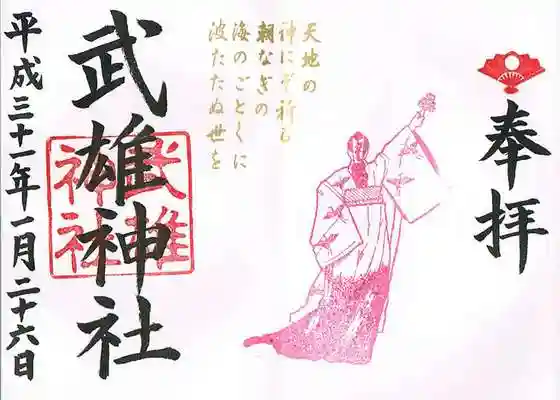 奉拝
天地の
神にぞ祈る
朝なぎの
海のごとくに
波たたぬ世を
武雄神社
武雄
神社
平成三十一年一月二十六日